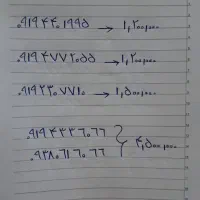 ۰۹۱۹۴۴۰۱۹۹۵ → ۱,۲۰۰,۰۰۰
۰۹۱۹۴۷۷۲۰۵۵ → ۱,۲۰۰,۰۰۰
۰۹۱۹۲۳۰۷۷۱۰ → ۱,۵۰۰,۰۰۰
۰۹۱۹۴۳۳۶۰۶۶
۰۹۳۸۰۶۱۶۰۶۶ } ۴,۵۰۰,۰۰۰